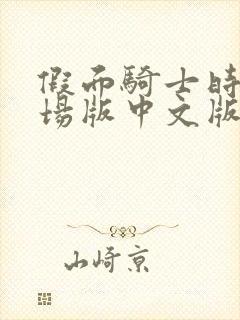 假而騎士時
場版中文版
山崎京